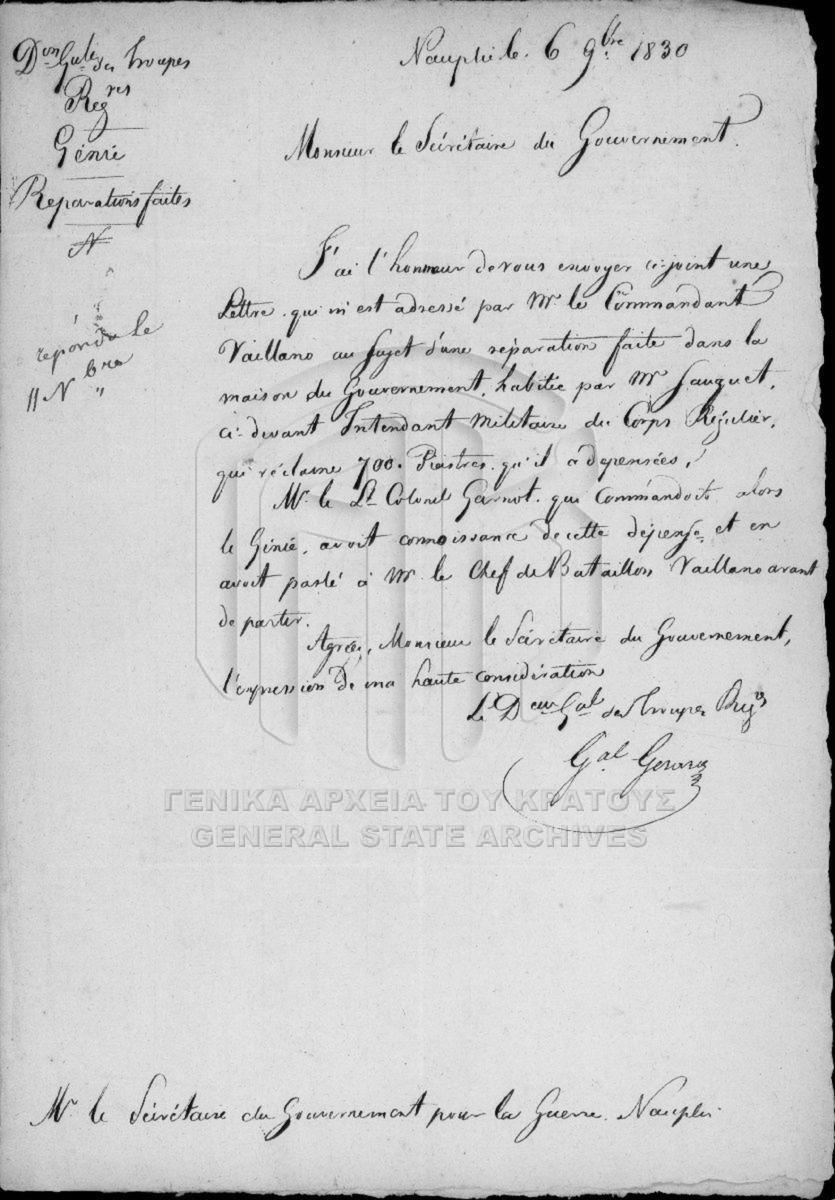 Don Gale des Troupes
Regres
Génie
Réparations faites
N
repondu le
11 Nbre
Nauplie le 6 9bre 1830
Monsieur le Sécrétaire du Gouvernement.
J'ai l'honneur de vous envoyer ci-joint une
Lettre qui m'est adressé par Mr le Commandant
Vaillano au sujet d'une réparation faite dans la
maison du Gouvernement, habitée par Mr
ci-devant Intendant Militaire du Corps Régulier,
qui réclame 700. Piastres qu'il a dépensées.
Mr. le Lt Colonel Garnot qui Commandoit alors
le Génie, avoit connoissance de cette dépense et en
avoit parlé à Mr le Chef de Bataillon Vaillano avant
de partir.
Agréez, Monsieur le Sécrétaire du Gouvernement,
l'expression de ma haute considération
Le Deur Gal des Troupes Regres
Gal Gerard
ΓΕΝΙΚΑ ΑΡΧΕΙΑ ΤΟΥ ΚΡΑΤΟΥΣ
GENERAL STATE ARCHIVES
Mr le Sécrétaire du Gouvernement pour la Guerre. Nauplie